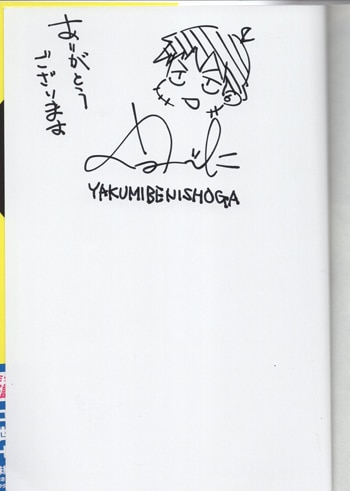 ありがとう
ございます
YAKUMIBENISHOGA